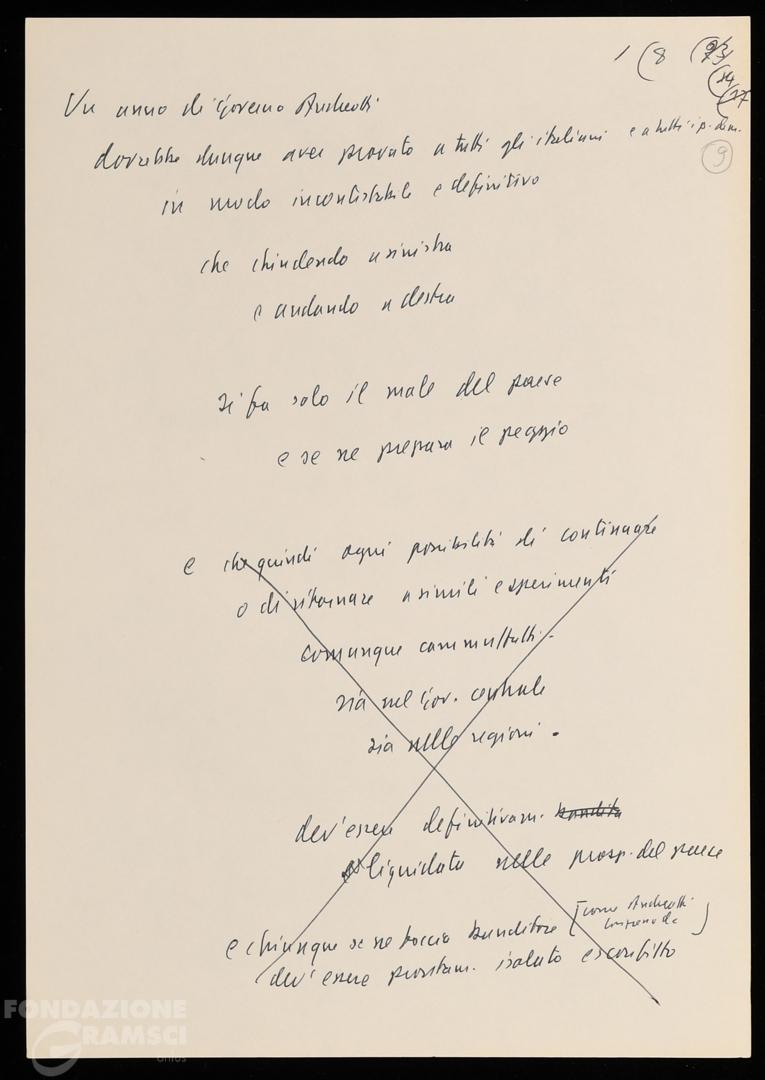 1 (8
9
Un anno di Governo Andreotti
dovrebbe dunque aver provato a tutti gli italiani e a tutti i p. dem.
in modo incontestabile e definitivo
che chiudendo a sinistra
e andando a destra
si fa solo il male del paese
e se ne prepara il peggio
e che quindi ogni possibilità di continuare
o di ritornare a simili esperimenti
comunque cammuffatti -
sia nel Gov. centrale
sia nelle regioni .
dev'essere definitivam. bandita
liquidata nelle prosp. del paese
e chiunque se ne faccia banditore [come Andreotti
]
dev'essere prontam. isolato e sconfitto
FONDAZIONE
GRAMSCI
onlus